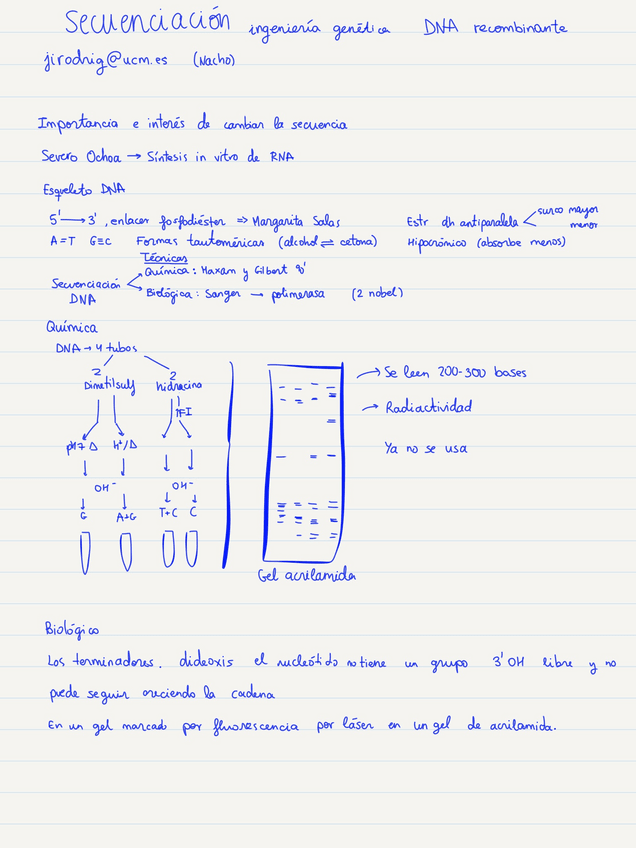 Secuenciación ingeniería genética DNA recombinante
jirodrig@ucm.es (Nacho)
Importancia e interés de cambiar la secuencia
Severo Ochoa → Síntesis in vitro de RNA
Esqueleto DNA
5' → 3', enlacer fosfodiéster => Margarita Salas
Estr dh antiparalela < surco mayor
menor
A=T G≡C Formas tautoméricas (alcohol ⇌ cetona)
Hipocrómico (absorbe menos)
Técnicas
Secuenciación DNA
Química: Maxam y Gilbert
Biológica: Sanger → polimerasa (2 nobel)
Química
DNA → 4 tubos
2 2
Dimetilsulf hidracina
pH7 Δ H⁺/Δ
OH⁻ OH⁻
G A+G T+C C
Gel acrilamida
→ Se leen 200-300 bases
→ Radiactividad
Ya no se usa
Biológico
Los terminadores. dideoxis el nucleótido no tiene un grupo 3'OH libre y no
puede seguir creciendo la cadena
En un gel marcado por fluorescencia por láser en un gel de acrilamida.